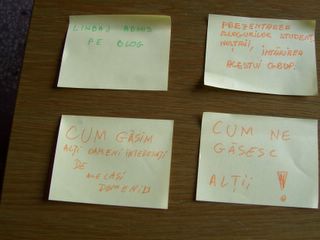 LIMBAJ ADMIS
PE BLOG
PREZENTAREA
BLOGURILOR STUDENT.
NOȘTRII,
INTĂRIREA
ACESTUI GRUP.
CUM GĂSIM
ALȚI OAMENI INTERESAȚI
DE
ACELAȘI
DOMENIU
CUM NE
GĂSESC
ALȚII !